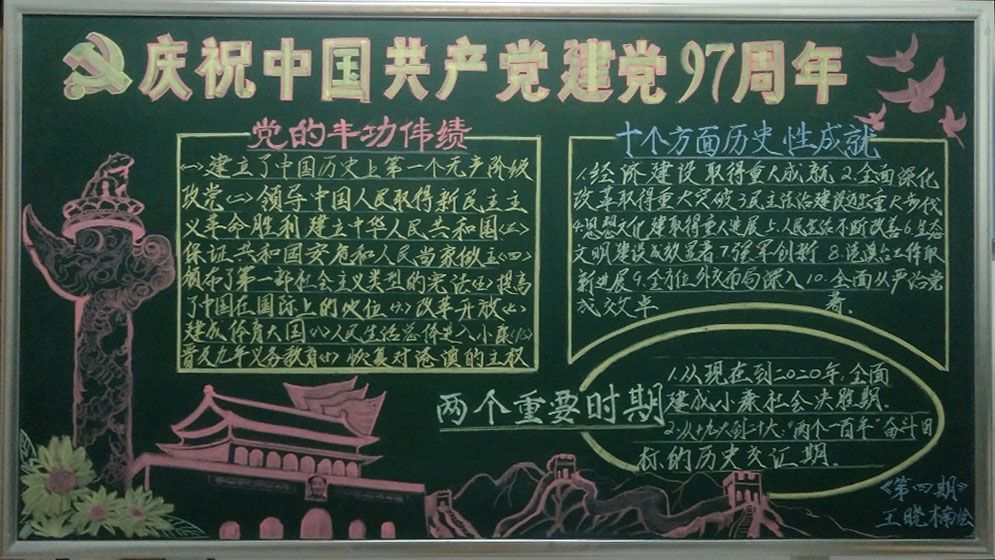 庆祝中国共产党建党97周年
党的丰功伟绩
㈠建立了中国历史上第一个无产阶级
政党㈡领导中国人民取得新民主主
义革命胜利建立中华人民共和国㈢
保证共和国安危和人民当家做主㈣
颁布了第一部社会主义类型的宪法㈤提高
了中国在国际上的地位㈥改革开放㈦
建成体育大国㈧人民生活总体进入小康㈨
普及九年义务教育㈩恢复对港澳的主权
十个方面历史性成就
1.经济建设取得重大成就2.全面深化
改革取得重大突破3民主法治建设迈出重大步伐
4.思想文化建设取得重大进展5人民生活不断改善6.生态
文明建设成效显著7强军创新8.港澳台工作取
新进展9.全方位外交布局深入10.全面从严治党
成效卓著.
两个重要时期
1.从现在到2020年,全面
建成小康社会决胜期.
2.从十九大到二十大,"两个一百年"奋斗目
标的历史交汇期.
《第四期》
王晓楠绘